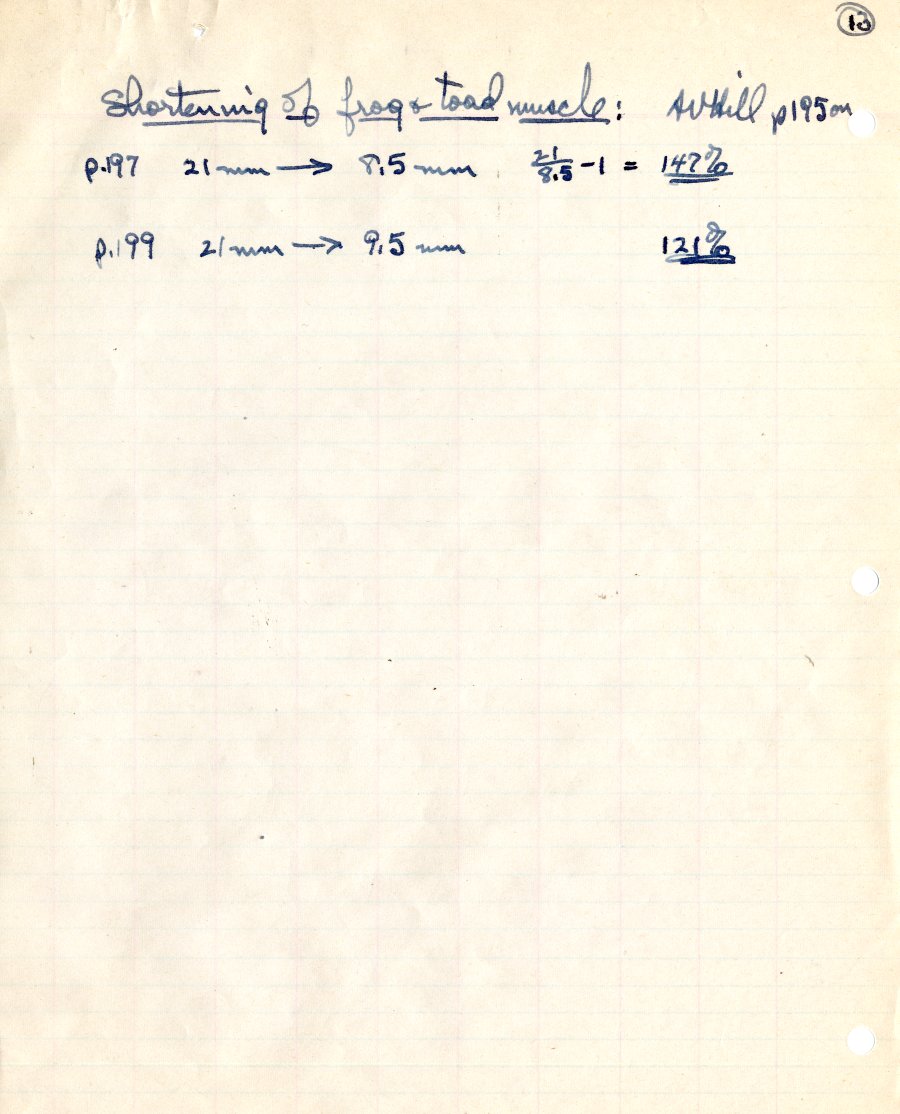 13
Shortening of frog & toad muscle: AVHill p195on
p.197 21mm → 8.5mm 21/8.5 -1 = 147%
p.199 21mm → 9.5mm 121%